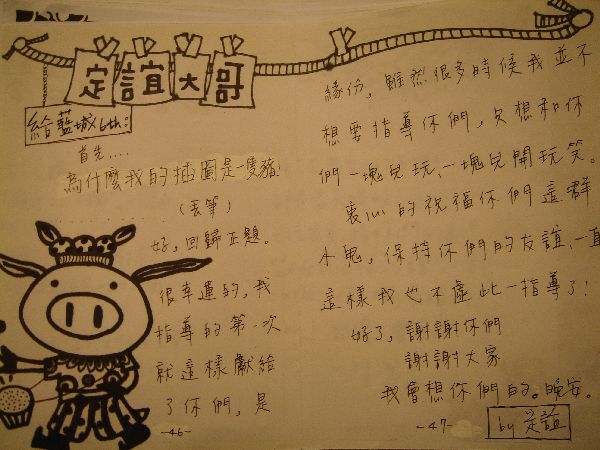 定誼大哥
給藍城6th：
首先....
為什麼我的插圖是一隻豬！
............(丟筆)
好，回歸正題。
很幸運的，我
指導的第一次
就這樣獻給
了你們，是
-46-
緣份，雖然很多時候我並不
想要指導你們，只想和你
們一塊兒玩、一塊兒開玩笑。
衷心的祝福你們這群
小鬼，保持你們的友誼，一直
這樣我也不虛此一指導了！
好了，謝謝你們
謝謝大家
我會想你們的。晚安。
-47-
by 定誼